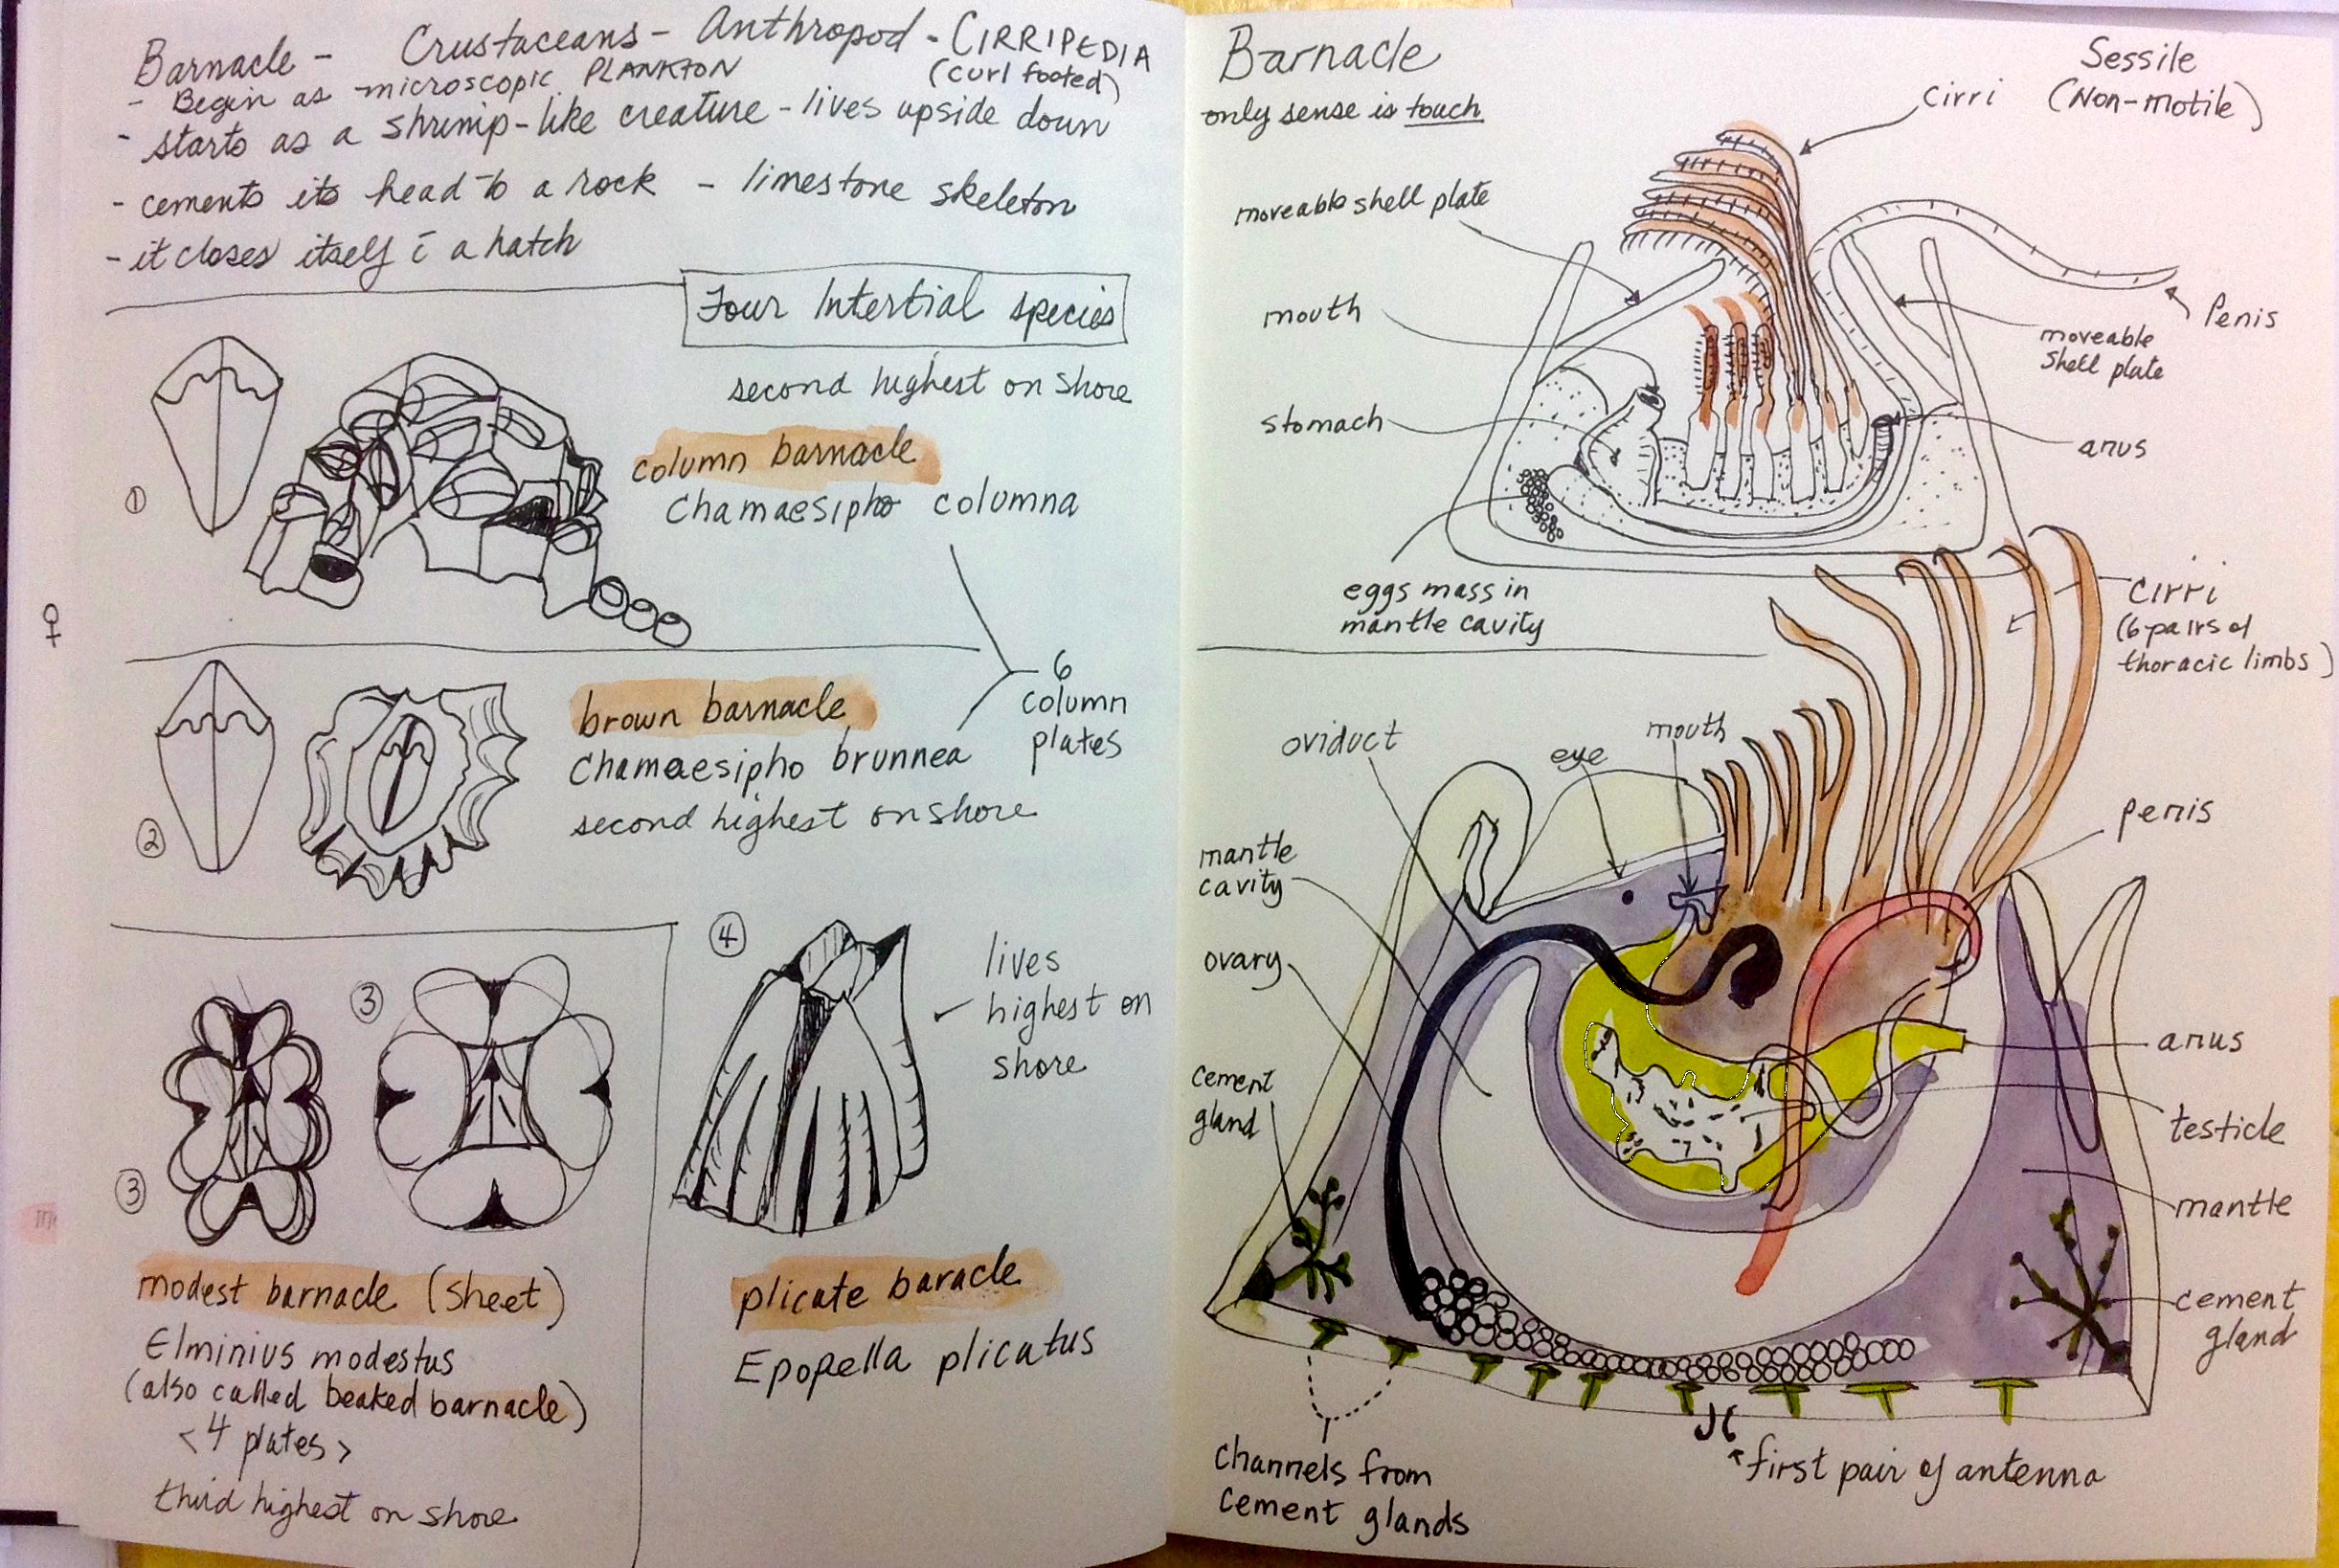 Barnacle - Crustaceans - Anthropod - CIRRIPEDIA
(curl footed)
- Begin as microscopic PLANKTON
- starts as a shrimp-like creature - lives upside down
- cements its head to a rock - limestone skeleton
- it closes itself c̄ a hatch
Four Intertial species
second highest on shore
①
column barnacle
Chamaesipho columna
6
column
plates
♀
②
brown barnacle
Chamaesipho brunnea
second highest on shore
③
③
modest barnacle (sheet)
Elminius modestus
(also called beaked barnacle)
<4 plates>
third highest on shore
④
lives
highest on
shore
plicate baracle
Epopella plicatus
Barnacle
only sense is touch
Sessile
(Non-motile)
cirri
moveable shell plate
mouth
stomach
eggs mass in
mantle cavity
Penis
moveable
shell plate
anus
cirri
(6 pairs of
thoracic limbs)
oviduct
eye
mouth
mantle
cavity
ovary
cement
gland
penis
anus
testicle
mantle
cement
gland
channels from
cement glands
first pair of antenna